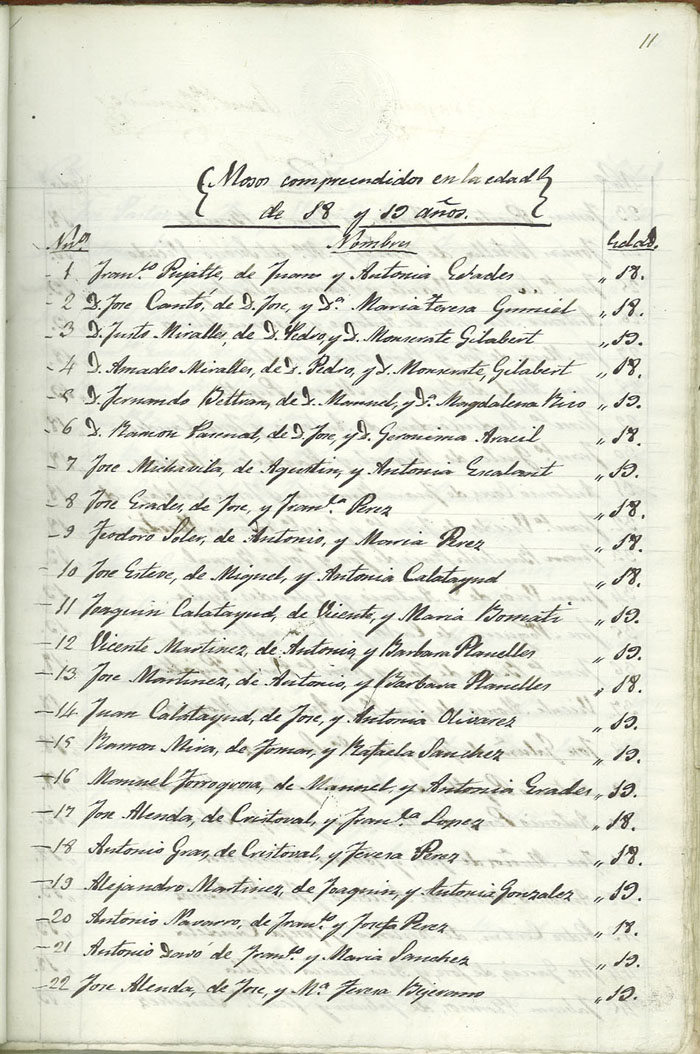 11
Mosos comprendidos en la edad
de 18 y 19 años.
Nros. Nombres Edad.
1 Franco. Pujalte, de Juan y Antonia Erades „ 18.
2 D. Jose Cantó, de D. Jose, y Da. Maria Teresa Gumiel „ 18.
3 D. Justo Miralles, de D. Pedro, y D. Monserate Gilabert „ 19.
4 D. Amadeo Miralles, de D. Pedro, y D. Monserate, Gilabert „ 18.
5 D. Fernando Beltran, de D. Manuel, y Da. Magdalena Rico „ 19.
6 D. Ramon Pascual, de D. Jose, y D. Geronima Aracil „ 18.
7 Jose Michavila, de Agustin, y Antonia Escalant „ 19.
8 Jose Erades, de Jose, y Franca. Perez „ 18.
9 Teodoro Soler, de Antonio, y Maria Perez „ 18.
10 Jose Esteve, de Miguel, y Antonia Calatayud „ 18.
11 Joaquin Calatayud, de Vicente, y Maria Bomati „ 19.
12 Vicente Martinez, de Antonio, y Barbara Planelles „ 19.
13 Jose Martinez, de Antonio, y Barbara Planelles „ 18.
14 Juan Calatayud, de Jose, y Antonia Olivarez „ 19.
15 Ramon Mira, de Tomas, y Rafaela Sanchez „ 19.
16 Manuel Torregrosa, de Manuel, y Antonia Erades „ 19.
17 Jose Alenda, de Cristoval, y Franca. Lopez „ 18.
18 Antonio Gras, de Cristoval, y Teresa Perez „ 18.
19 Alejandro Martinez, de Joaquin, y Antonia Gonzalez „ 19.
20 Antonio Navarro, de Franco. y Josefa Perez „ 18.
21 Antonio Davó de Franco. y Maria Sanchez „ 19.
22 Jose Alenda, de Jose, y Ma. Teresa Bejerano „ 19.